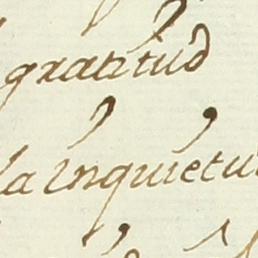 gratitud
la inquietu